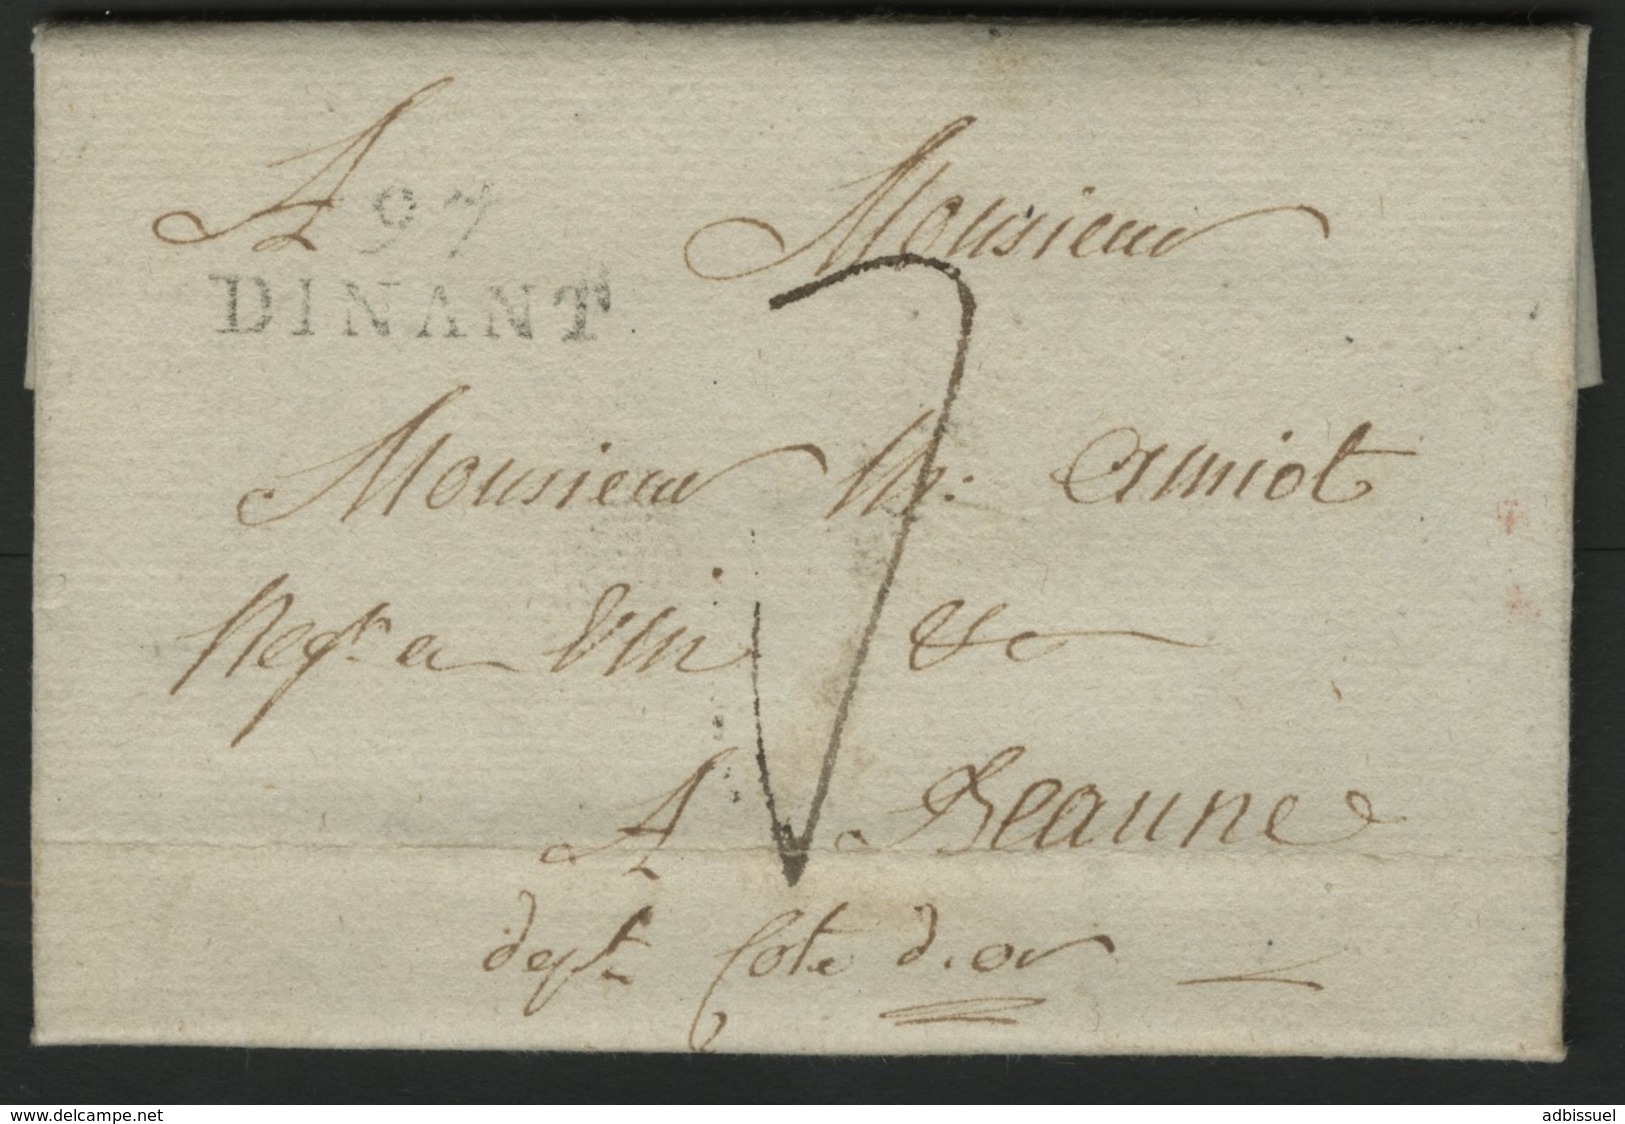 A Monsieur
97
DINANT
7
Monsieur Amiot
Negt. en Vin &c
A Beaune
dept. Cote d'or
www.delcampe.net adbissuel